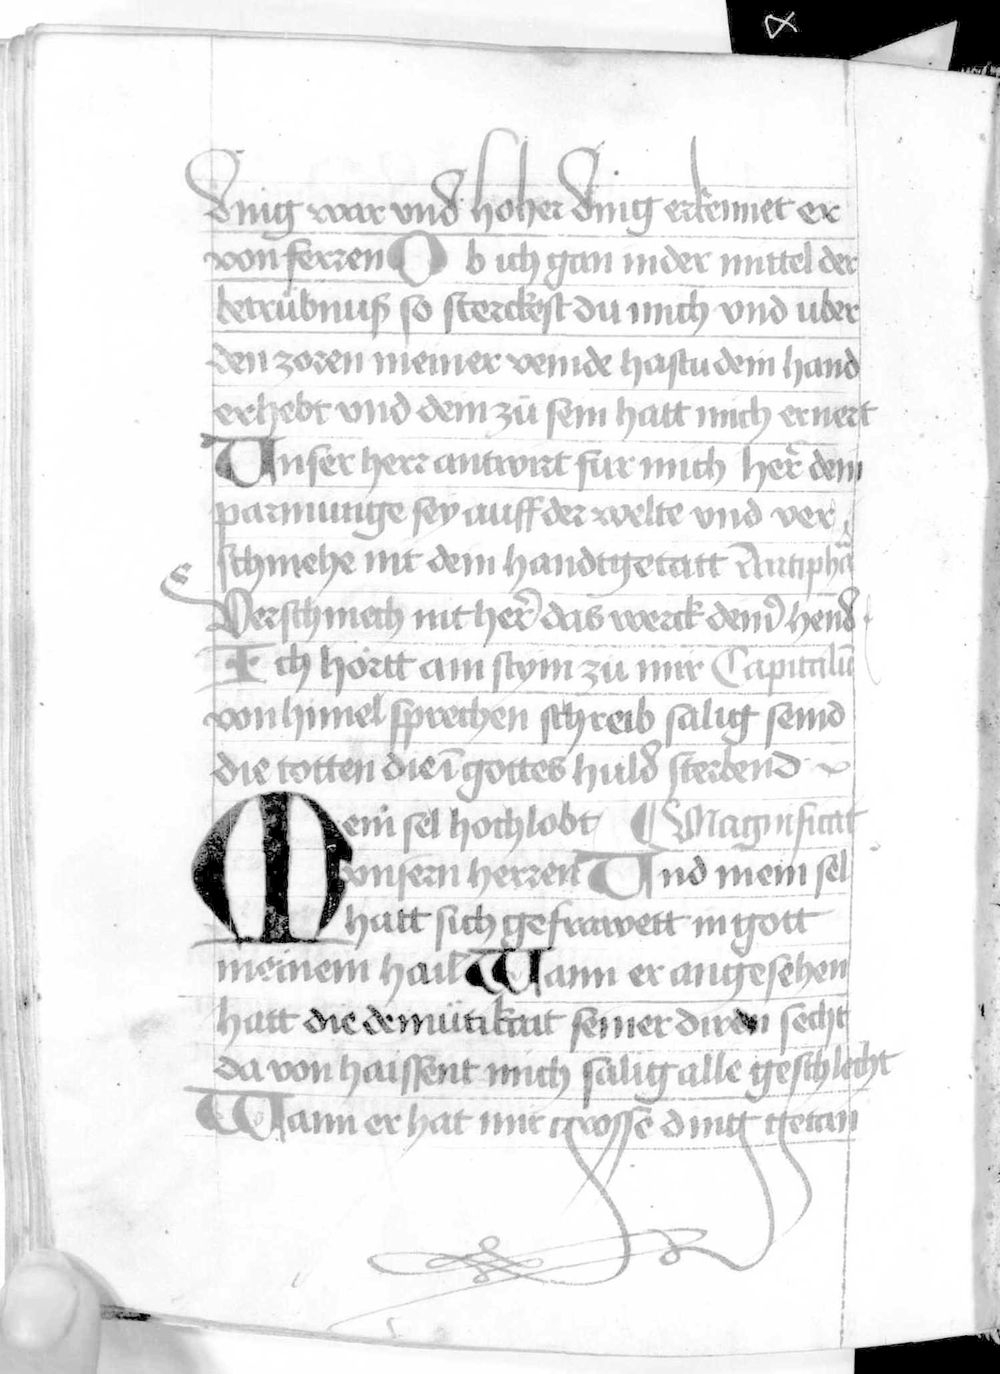 dinig war vnd hoher dinig erkennet er
von ferren Ob ich gan in der mittel der
betrübnuß so sterckest du mich vnd uber
den zoren meiner veinde hastu dein hand
erhebt vnd dein zū sem hatt mich ernert
Unser herr antwirt für mich her̃ dein
parmunge sey auff der welte vnd ver
schmehe nit dein handtgetatt Antiphā
Verschmech nit her̃ das werck dein̾ hend̾
Ich hörtt ain stym zu mir Capitilū
von himel sprechen schreib salig seind
die totten die ī gottes huld̾ sterbend
Mein sel hochlobt ¶ Magnificat
vnsern herren Und mein sel
hatt sich gefrawett in gott
meinem hail Wann er angesehen
hatt die demütikait seiner diren secht
da von haissent mich sälig alle geschlecht
Wann er hat mir grosse ding getan